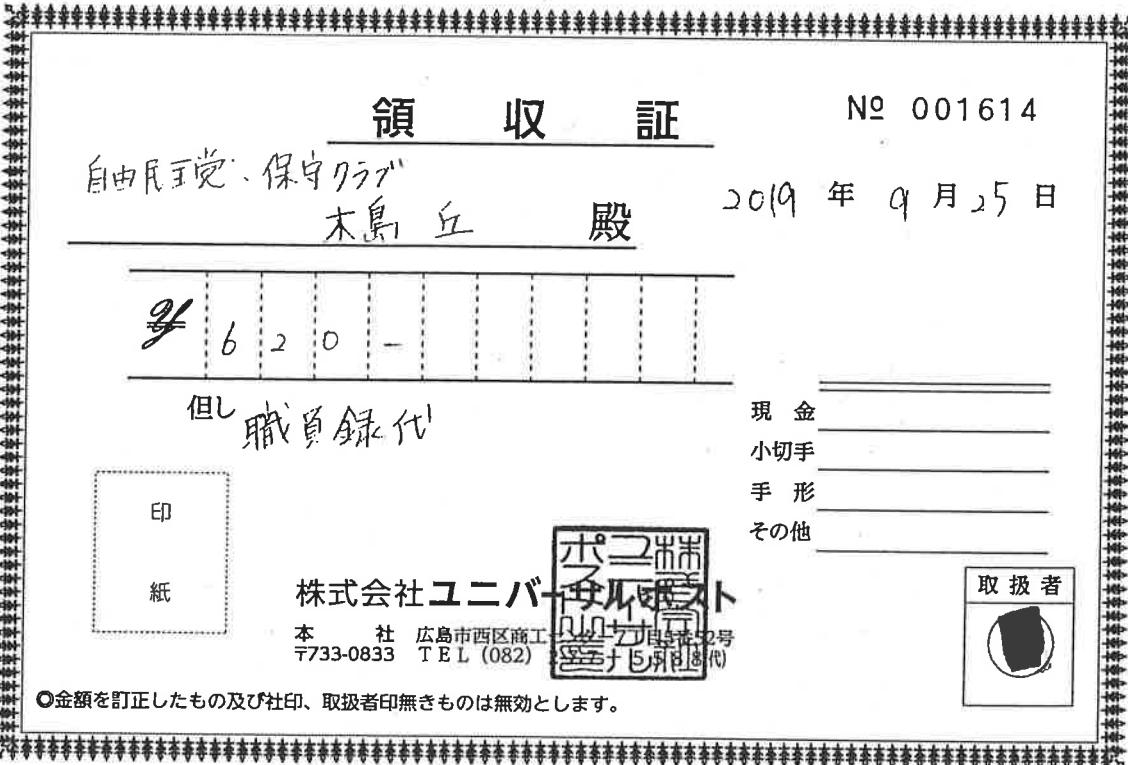 領収証
№ 001614
自由民主党・保守クラブ
木島 丘 殿
2019 年 9 月 25 日
¥ 620-
但し 職員録代
現金
小切手
手形
その他
印
紙
株式会社ユニバーサルポスト
本社 広島市西区商工センター七丁目5番52号
〒733-0833 TEL (082)
取扱者
◎金額を訂正したもの及び社印、取扱者印無きものは無効とします。